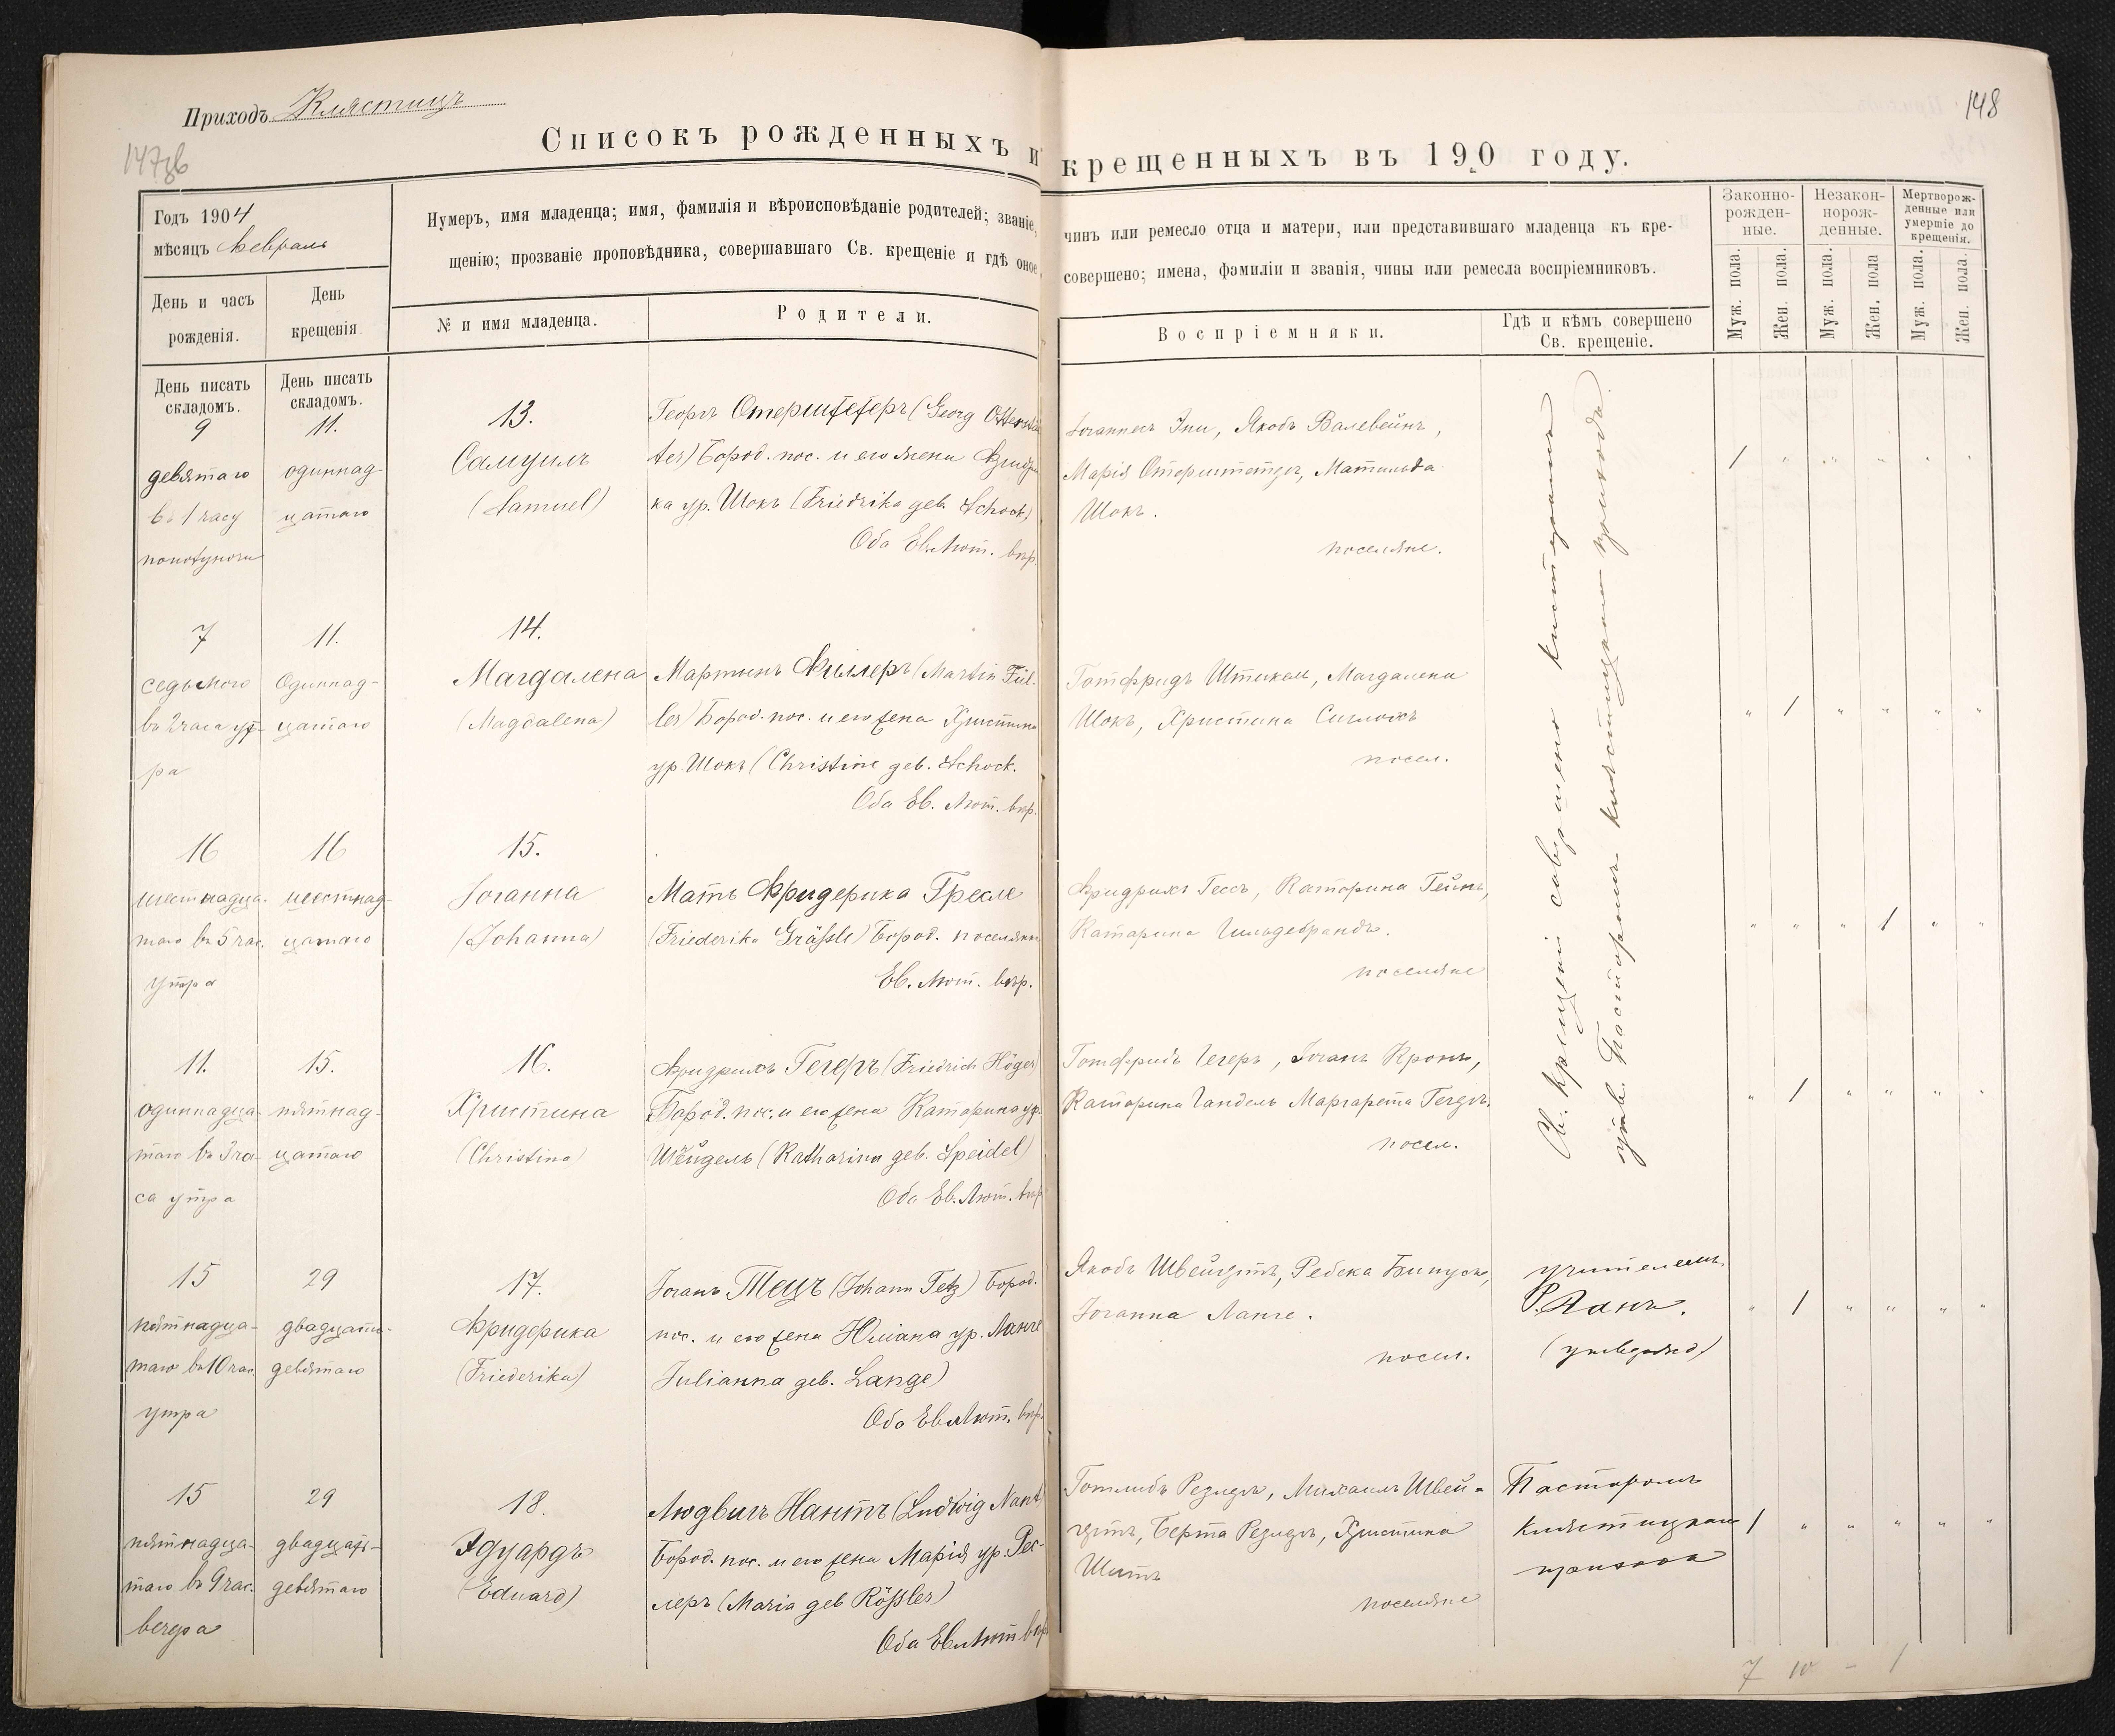 Приходъ Клястицъ
147об
148
Списокъ рожденныхъ и крещенныхъ въ 190 году.
Годъ 1904
мѣсяцъ Февраль
Нумеръ, имя младенца; имя, фамилія и вѣроисповѣданіе родителей; званіе, чинъ или ремесло отца и матери, или представившаго младенца къ кре-
щенію; прозваніе проповѣдника, совершавшаго Св. крещеніе и гдѣ оное совершено; имена, фамиліи и званія, чины или ремесла воспріемниковъ.
Законно-
рожден-
ные.
Незакон-
норож-
денные.
Мертворож-
денные или
умершіе до
крещенія.
День и часъ
рожденія.
День
крещенія.
№ и имя младенца.
Родители.
Воспріемники.
Гдѣ и кѣмъ совершено
Св. крещеніе.
Муж. пола.
Жен. пола.
Муж. пола.
Жен. пола
Муж. пола.
Жен. пола.
День писать
складомъ.
День писать
складомъ.
9
девятаго
въ 1 часу
11.
одиннад-
цатаго
13.
Самуилъ
(Samuel)
Георгъ Отерштетеръ (Georg Otterstät
ter) Бород. пос. и его жена Фридри
ка ур. Шокъ (Friedrika geb. Schock)
Оба Ев. Лют. вѣр.
Якобъ Валевейнъ,
Марія Отерштетеръ, Матильда
Шокъ.
поселяне.
7
седьмого
въ 2 часа ут-
ра
11.
Одиннад-
цатаго
14.
Магдалена
(Magdalena)
Мартинъ Филлеръ (Martin Fül-
ler) Бород. пос. и его жена Христина
ур. Шокъ (Christine geb. Schock.
Оба Ев. Лют. вѣр.
Готфридъ Штикель, Магдалена
Шокъ, Христина
посел.
16
шестнадца-
таго въ 5 час.
утра
16
шестнад-
цатаго
15.
Іоганна
(Johanna)
Мать Фридерика Гресле
(Friederika Gräßle) Бород. поселянка
Ев. Лют. вѣр.
Фридрихъ Гессъ, Катарина Гейнъ,
Катарина Гильдебрандъ.
поселяне
11.
одиннадца-
таго въ 3 ча-
са утра
15.
пятнад-
цатаго
16.
Христина
(Christina)
Фридрихъ Гегеръ (Friedrich Höger)
Бород. пос. и его жена Катарина ур.
Шпейдель (Katharina geb. Speidel)
Оба Ев. Лют. вѣр
Готфридъ Гегеръ, Іоганъ Кронъ,
Катарина Гандель Маргарета Гегеръ.
посел.
Св. крещеніе совершено
утв. Пасторомъ Клястицкаго прихода.
15
пятнадца-
таго въ 10 час.
утра
29
двадцать-
девятаго
17.
Фридерика
(Friederika)
Іоганъ Тецъ (Johann Tetz) Бород.
пос. и его жена Юліана ур. Ланге
Julianna geb. Lange)
Оба Ев. Лют. вѣр.
Якобъ Швейгертъ, Ребека Бипусъ,
Іоганна Ланге.
посел.
учителемъ
Р. Ланъ.
15
пятнадца-
таго въ 9 час.
вечера
29
двадцать-
девятаго
18.
Эдуардъ
(Eduard)
Людвигъ Нантъ (Ludwig Nant)
Бород. пос. и его жена Марія ур. Рес-
леръ (Maria geb Rößler)
Оба Ев. Лют. вѣр
Готлибъ Реслеръ, Михаилъ Швей-
гертъ, Берта Реслеръ, Христина
Шитъ
поселяне
Пасторомъ
Клястицкаго
прихода
7 10 - 1